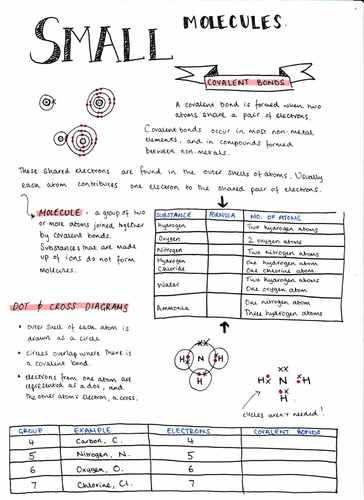 SMALL MOLECULES.
COVALENT BONDS
A covalent bond is formed when two
atoms share a pair of electrons.
Covalent bonds occur in most non-metal
elements, and in compounds formed
between non-metals.
These shared electrons are found in the outer shells of atoms. Usually
each atom contributes one electron to the shared pair of electrons.
MOLECULE - a group of two
or more atoms joined together
by covalent bonds.
Substances that are made
up of ions do not form
molecules.
SUBSTANCE FORMULA NO. OF ATOMS
Hydrogen Two hydrogen atoms
Oxygen 2 oxygen atoms
Nitrogen Two nitrogen atoms
Hydrogen Chloride One hydrogen atom One chlorine atom
Water Two hydrogen atoms One oxygen atom
Ammonia One nitrogen atom Three hydrogen atoms
DOT & CROSS DIAGRAMS
• outer shell of each atom is
drawn as a circle
• circles overlap where there is
a covalent bond.
• electrons from one atom are
represented as a dot, and
the other atom's electron, a cross.
H N H
H
H N H
H
circles aren't needed!
GROUP EXAMPLE ELECTRONS COVALENT BONDS
4 Carbon, C. 4
5 Nitrogen, N. 5
6 Oxygen, O. 6
7 Chlorine, Cl. 7